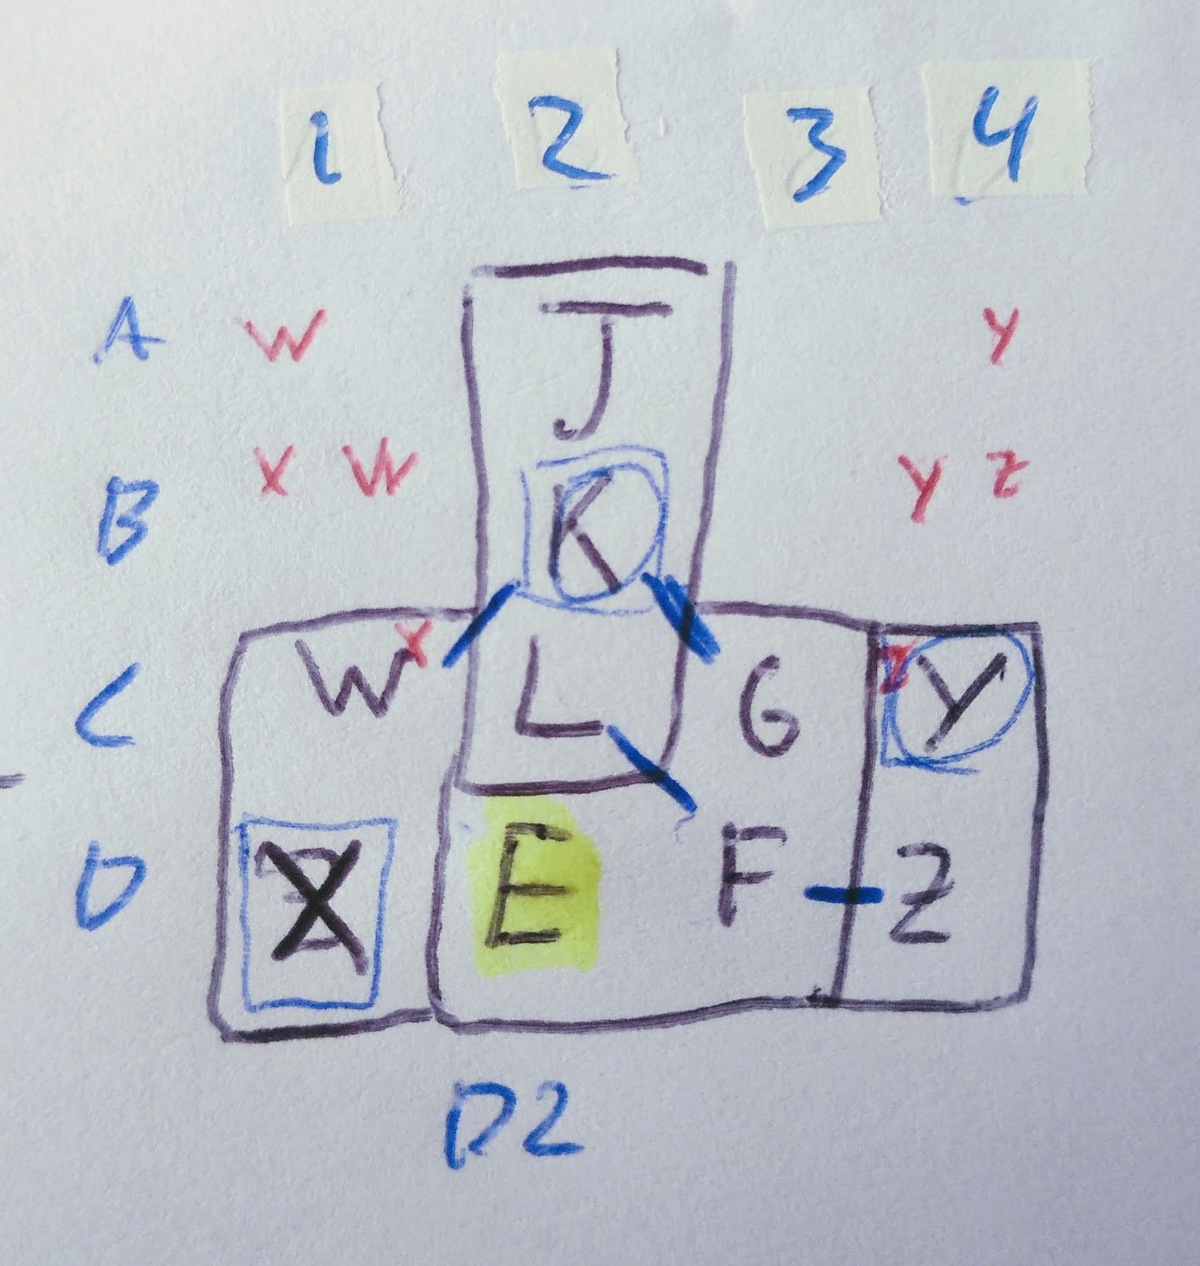 1 2 3 4
A W J Y
B X W K Y Z
C W X L G Z Y
D X E F Z
D2